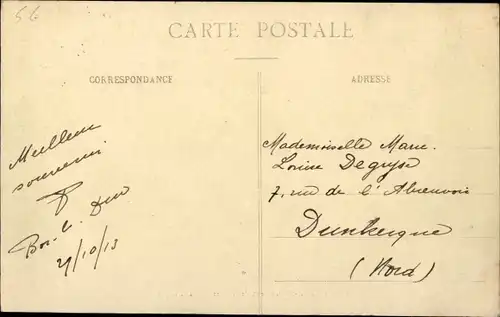 56
CARTE POSTALE
CORRESPONDANCE
ADRESSE
Meilleur
souvenir
Mademoiselle Marie
Louise Degryse
7, rue de l'Abreuvoir
Dunkerque
(Nord)
29/10/13